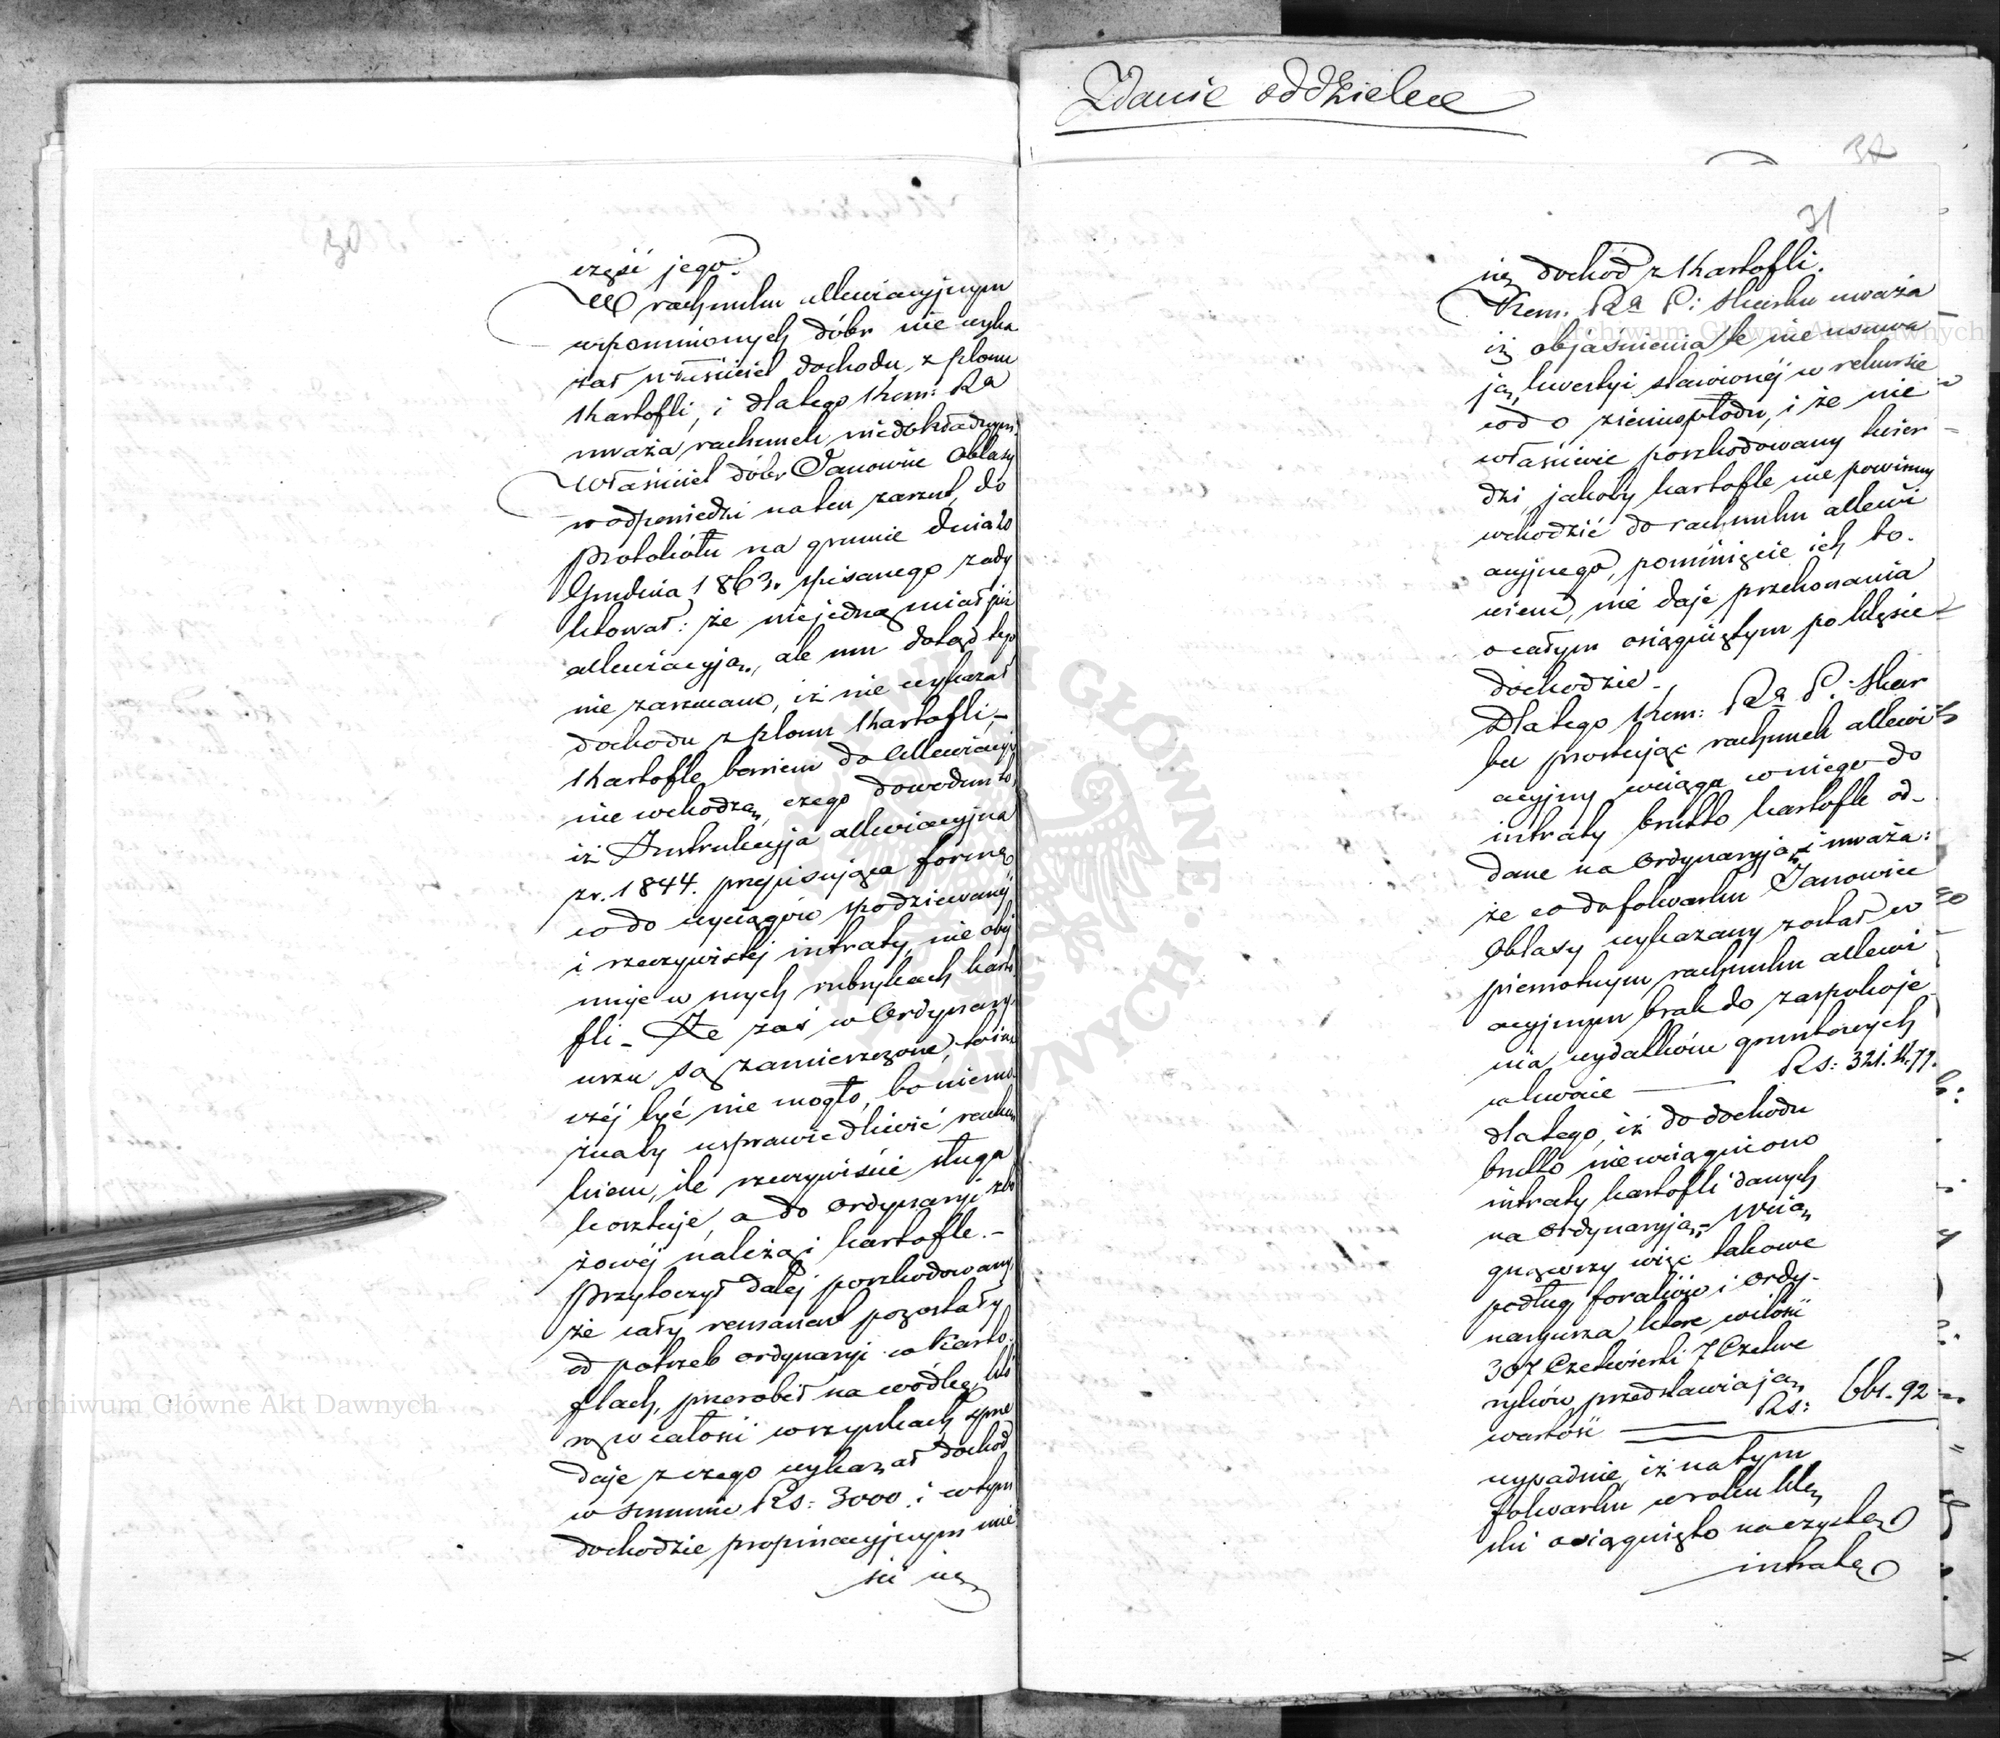 30
część jego.
W rachunku allewiacyjnym
wspomnionych dóbr nie wyka
zał właściciel dochodu, z plonu
Kartofli, i dlatego Kom: Ra
uważa rachunek niedokładnym.
Właściciel dóbr Janowiec Oblasy
w odpowiedzi na ten zarzut, do
Protokółu na gruncie dnia 10
Grudnia 1863. spisanego zady
ktował: że niejedną miał już
allewiacyją, ale mu dotąd tego
nie zarzucano, iż nie wykazał
dochodu z plonu Kartofli,–
Kartofle bowiem do allewiacyj
nie wchodzą, czego dowodem to,
iż Instrukcyja allewiacyjna
z r. 1844. przepisująca formę
co do wyciągów spodziewanej
i rzeczywistej intraty, nie obej
muje w swych rubrykach karto
fli – Że zaś w Ordynary
uszu są zamieszczone, to ina
czéj być nie mogło, bo niemo
żnaby usprawiedliwić rachun
kiem, ile rzeczywiście sługa
kosztuje, a do ordynaryi zbo
żowéj należą i kartofle. –
Przytoczył daléj poszkodowany,
że cały remanent pozostały
od potrzeb ordynaryi w Karto
flach, przerobił na wódkę, któ
rą w całości w szynkach sprze
daje z czego wykazał dochod
w summie Rs: 3000, i w tym
dochodzie propinacyjnym mie
ści się
Zdanie oddzielne
32
31
się dochód z Kartofli.
Kom: Ra P: Skarbu uważa
iż objaśnienia te nie usuwa
ją, kwestyi stawionéj w rekursie
co do ziemiopłodu, i że nie
właściwie poszkodowany twier
dzi, jakoby kartofle nie powinny
wchodzić do rachunku allewi
acyjnego, pominięcie ich bo-
wiem, nie daje przekonania
o całym osiągniętym po klęsce
dochodzie. –
Dlatego Kom: Ra P: Skar
bu prostując rachunek allewi
acyjny wciąga w niego do
intraty brutto kartofle od-
dane na ordynaryją i uważa:
że co do folwarku Janowiec
Oblasy wykazany został w
pierwotnym rachunku allewi
acyjnym brak do zaspokoje
nia wydatków gruntowych
w kwocie — Rs: 321. k. 77.
dlatego, iż do dochodu
brutto nie wciągniono
intraty kartofli danych
na Ordynaryją – Wcią
gnąwszy więc takowe
podług foraliów i ordy-
naryusza które w ilości
307 Czetwierti 7 Czetwe
ryków przedstawiają
wartość — Rs: 661. 92
wypadnie, iż na tym
folwarku w roku klę
ski osiągnięto na czystą
intratę
Archiwum Główne Akt Dawnych
Archiwum Główne Akt Dawnych